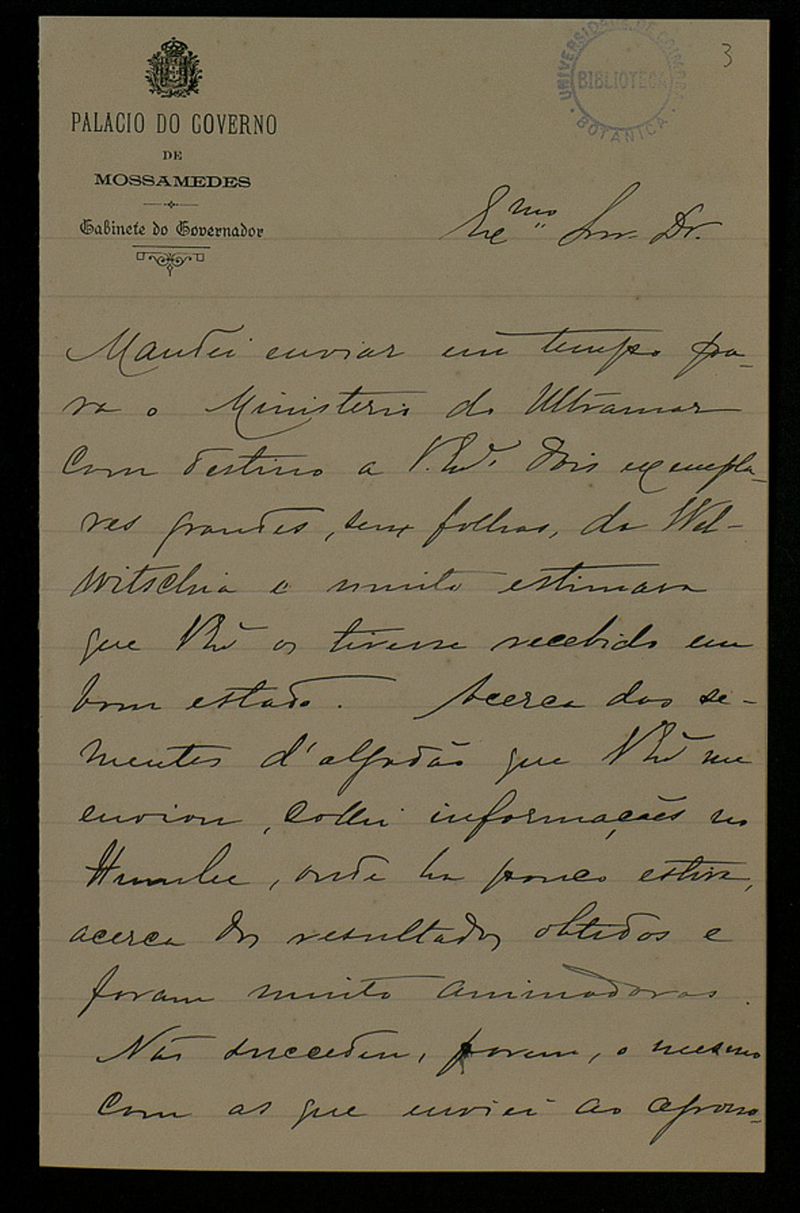 3
UNIVERSIDADE DE COIMBRA
BIBLIOTECA
BOTANICA
PALACIO DO GOVERNO
DE
MOSSAMEDES
Gabinete do Governador
Exmo Snr. Dr.
Mandei enviar em tempo pa-
ra o Ministerio do Ultramar
com destino a V. Exª. dois exempla-
res grandes, sem folhas, da Wel-
witschia e muito estimava
que V Exª os tivesse recebido em
bom estado. Acerca das se-
mentes d'algodão que V Exª me
enviou, colhi informações no
Humbe, onde ha pouco estive,
acerca dos resultados obtidos e
foram muito animadoras.
Não succedeu, porem, o mesmo
com as que enviei ao agrono-